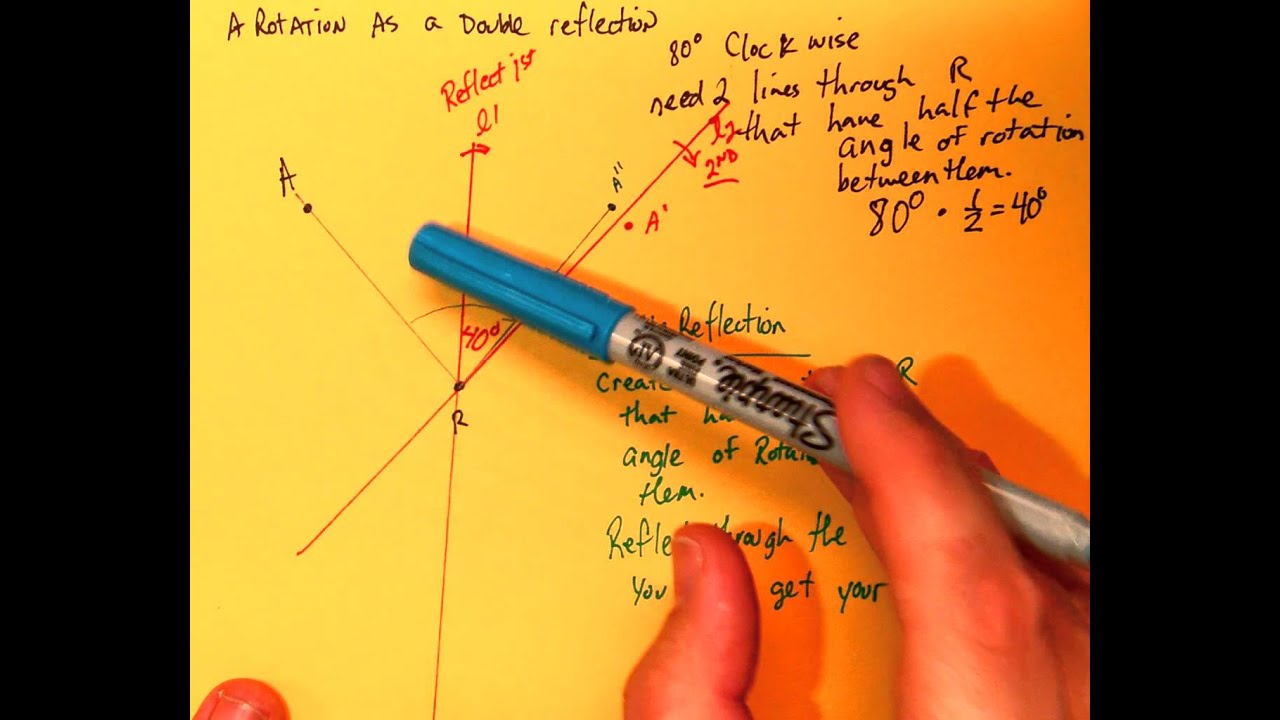 A Rotation As a Double reflection
80° Clockwise
need 2 lines through R
that have half the
angle of rotation
between them.
80° · 1/2 = 40°
Reflect 1st
l1
l2
2ND
A
A"
A'
40°
R
Reflection
Create R
that
angle of
them.
through the
You get your
Sharpie